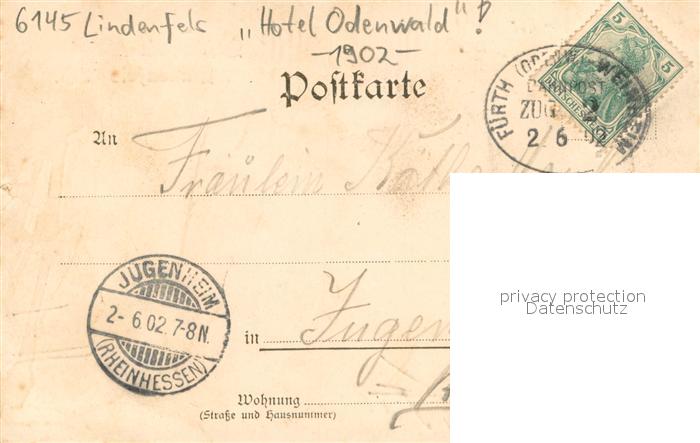 6145 Lindenfels „Hotel Odenwald"!
-1902-
Postkarte
5 5
FÜRTH (ODENW.)-WEINHEIM
BAHNPOST
ZUG
2/6 02
An
Fräulein Käthe
privacy protection
Datenschutz
JUGENHEIM
2-6.02.7-8N.
(RHEINHESSEN)
in Jugen
Wohnung
(Straße und Hausnummer)